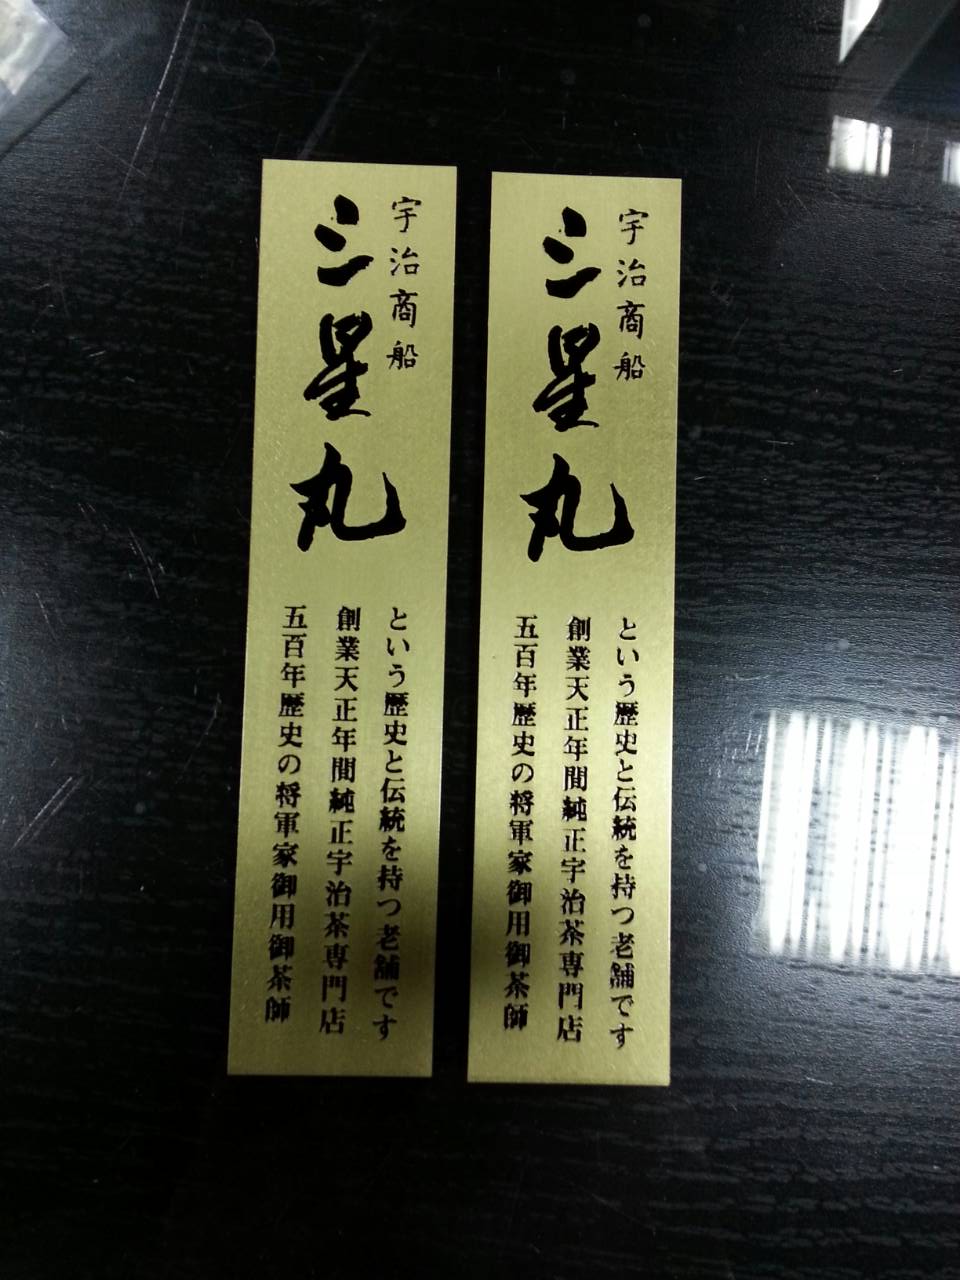 宇治商船
三星丸
という歴史と伝統を持つ老舗です
創業天正年間純正宇治茶専門店
五百年歴史の将軍家御用御茶師
宇治商船
三星丸
という歴史と伝統を持つ老舗です
創業天正年間純正宇治茶専門店
五百年歴史の将軍家御用御茶師